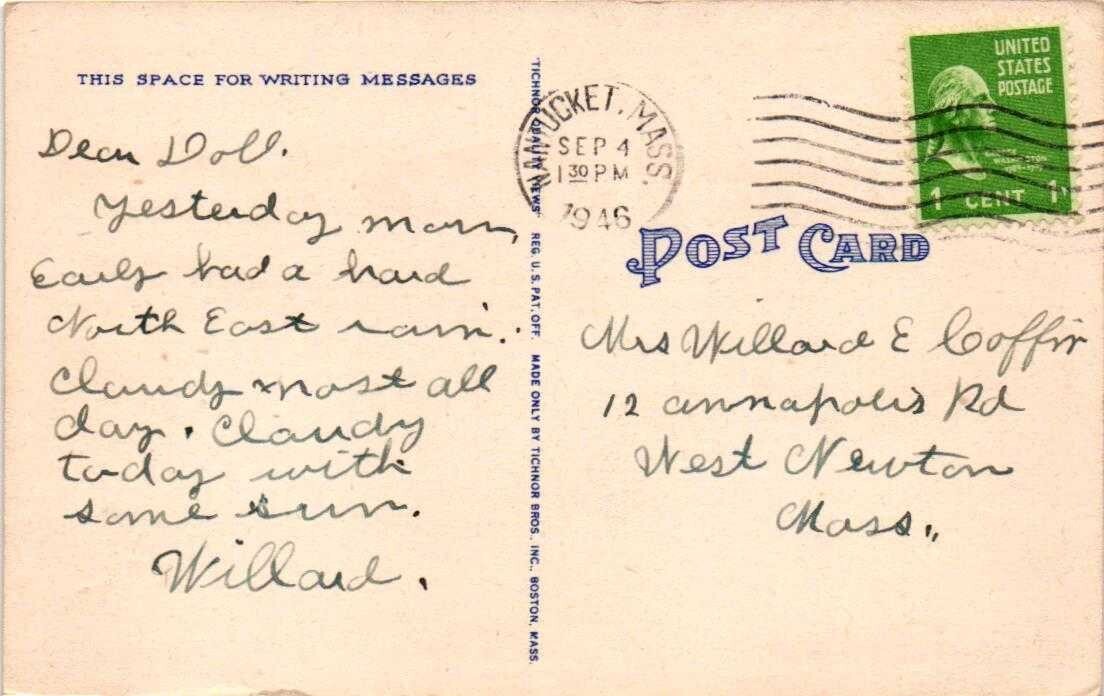 THIS SPACE FOR WRITING MESSAGES
Dear Doll.
Yesterday morn,
Early had a hard
North East rain.
Cloudy most all
day. Cloudy
today with
some sun.
Willard.
"TICHNOR QUALITY VIEWS" REG. U.S. PAT. OFF. MADE ONLY BY TICHNOR BROS., INC., BOSTON, MASS.
NANTUCKET, MASS.
SEP 4
1 30 PM
1946
UNITED
STATES
POSTAGE
GEORGE
WASHINGTON
1 CENT 1
POST CARD
Mrs Willard E Coffin
12 annapolis Rd
West Newton
Mass.,